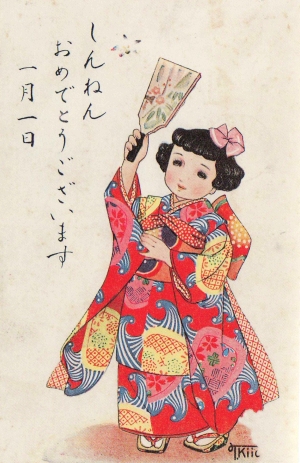 しんねん
おめでとうございます
一月一日